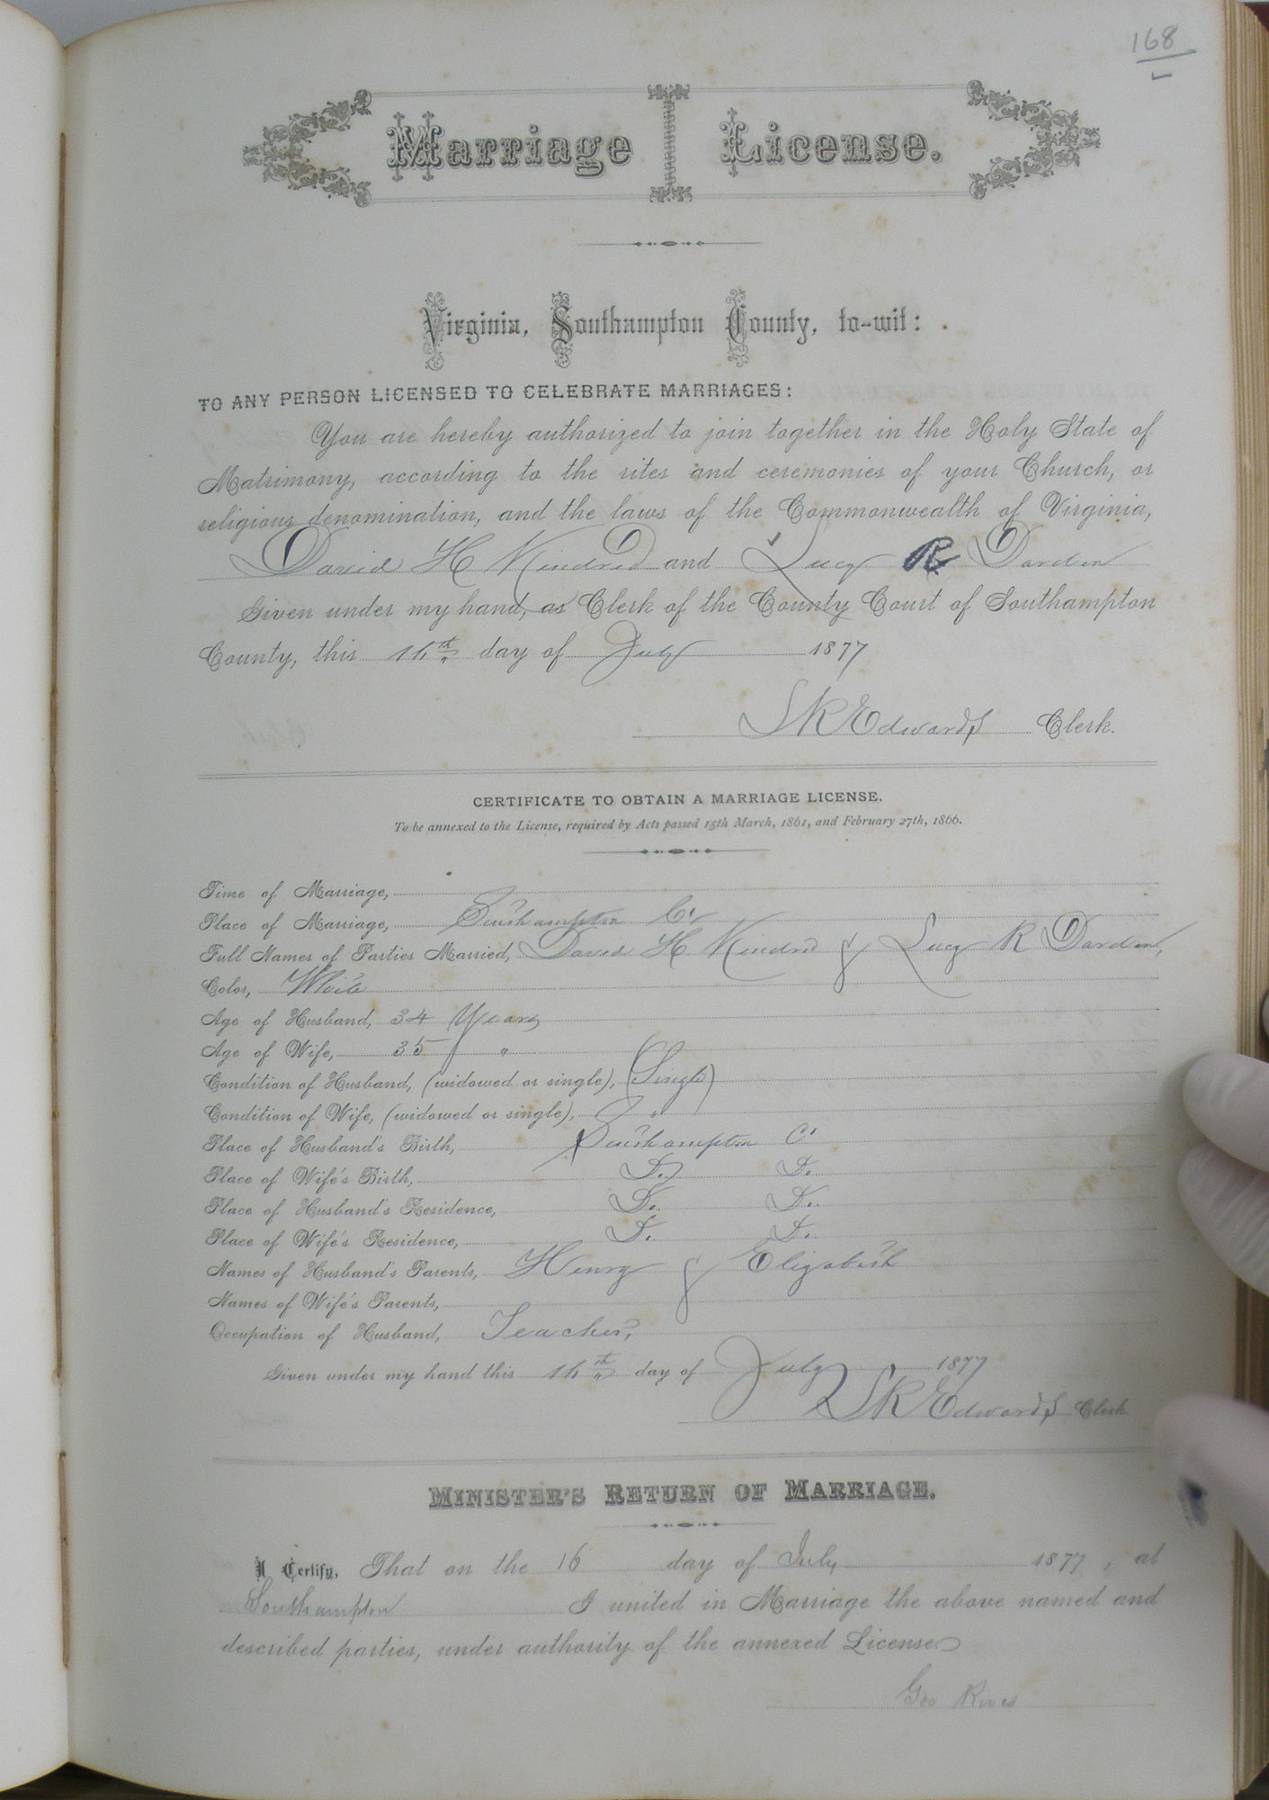 168
Marriage License.
Virginia, Southampton County, to-wit:
TO ANY PERSON LICENSED TO CELEBRATE MARRIAGES:
You are hereby authorized to join together in the Holy State of
Matrimony, according to the rites and ceremonies of your Church, or
religious denomination, and the laws of the Commonwealth of Virginia,
David H Kindred and Lucy R Darden
Given under my hand, as Clerk of the County Court of Southampton
County, this 16th day of July 1877
S R Edwards Clerk.
CERTIFICATE TO OBTAIN A MARRIAGE LICENSE.
To be annexed to the License, required by Acts passed 15th March, 1861, and February 27th, 1866.
Time of Marriage,
Place of Marriage, Southampton Co
Full Names of Parties Married, David H Kindred & Lucy R Darden,
Color, White
Age of Husband, 34 Years
Age of Wife, 35 "
Condition of Husband, (widowed or single), (Single)
Condition of Wife, (widowed or single), "
Place of Husband's Birth, Southampton Co
Place of Wife's Birth, Do. Do.
Place of Husband's Residence, Do. Do.
Place of Wife's Residence, Do. Do.
Names of Husband's Parents, Henry & Elizabeth
Names of Wife's Parents,
Occupation of Husband, Teacher,
Given under my hand this 16th day of July 1877
S R Edwards Clerk
MINISTER'S RETURN OF MARRIAGE.
I Certify, That on the 16 day of July 1877, at
Southampton I united in Marriage the above named and
described parties, under authority of the annexed License
Geo Rives